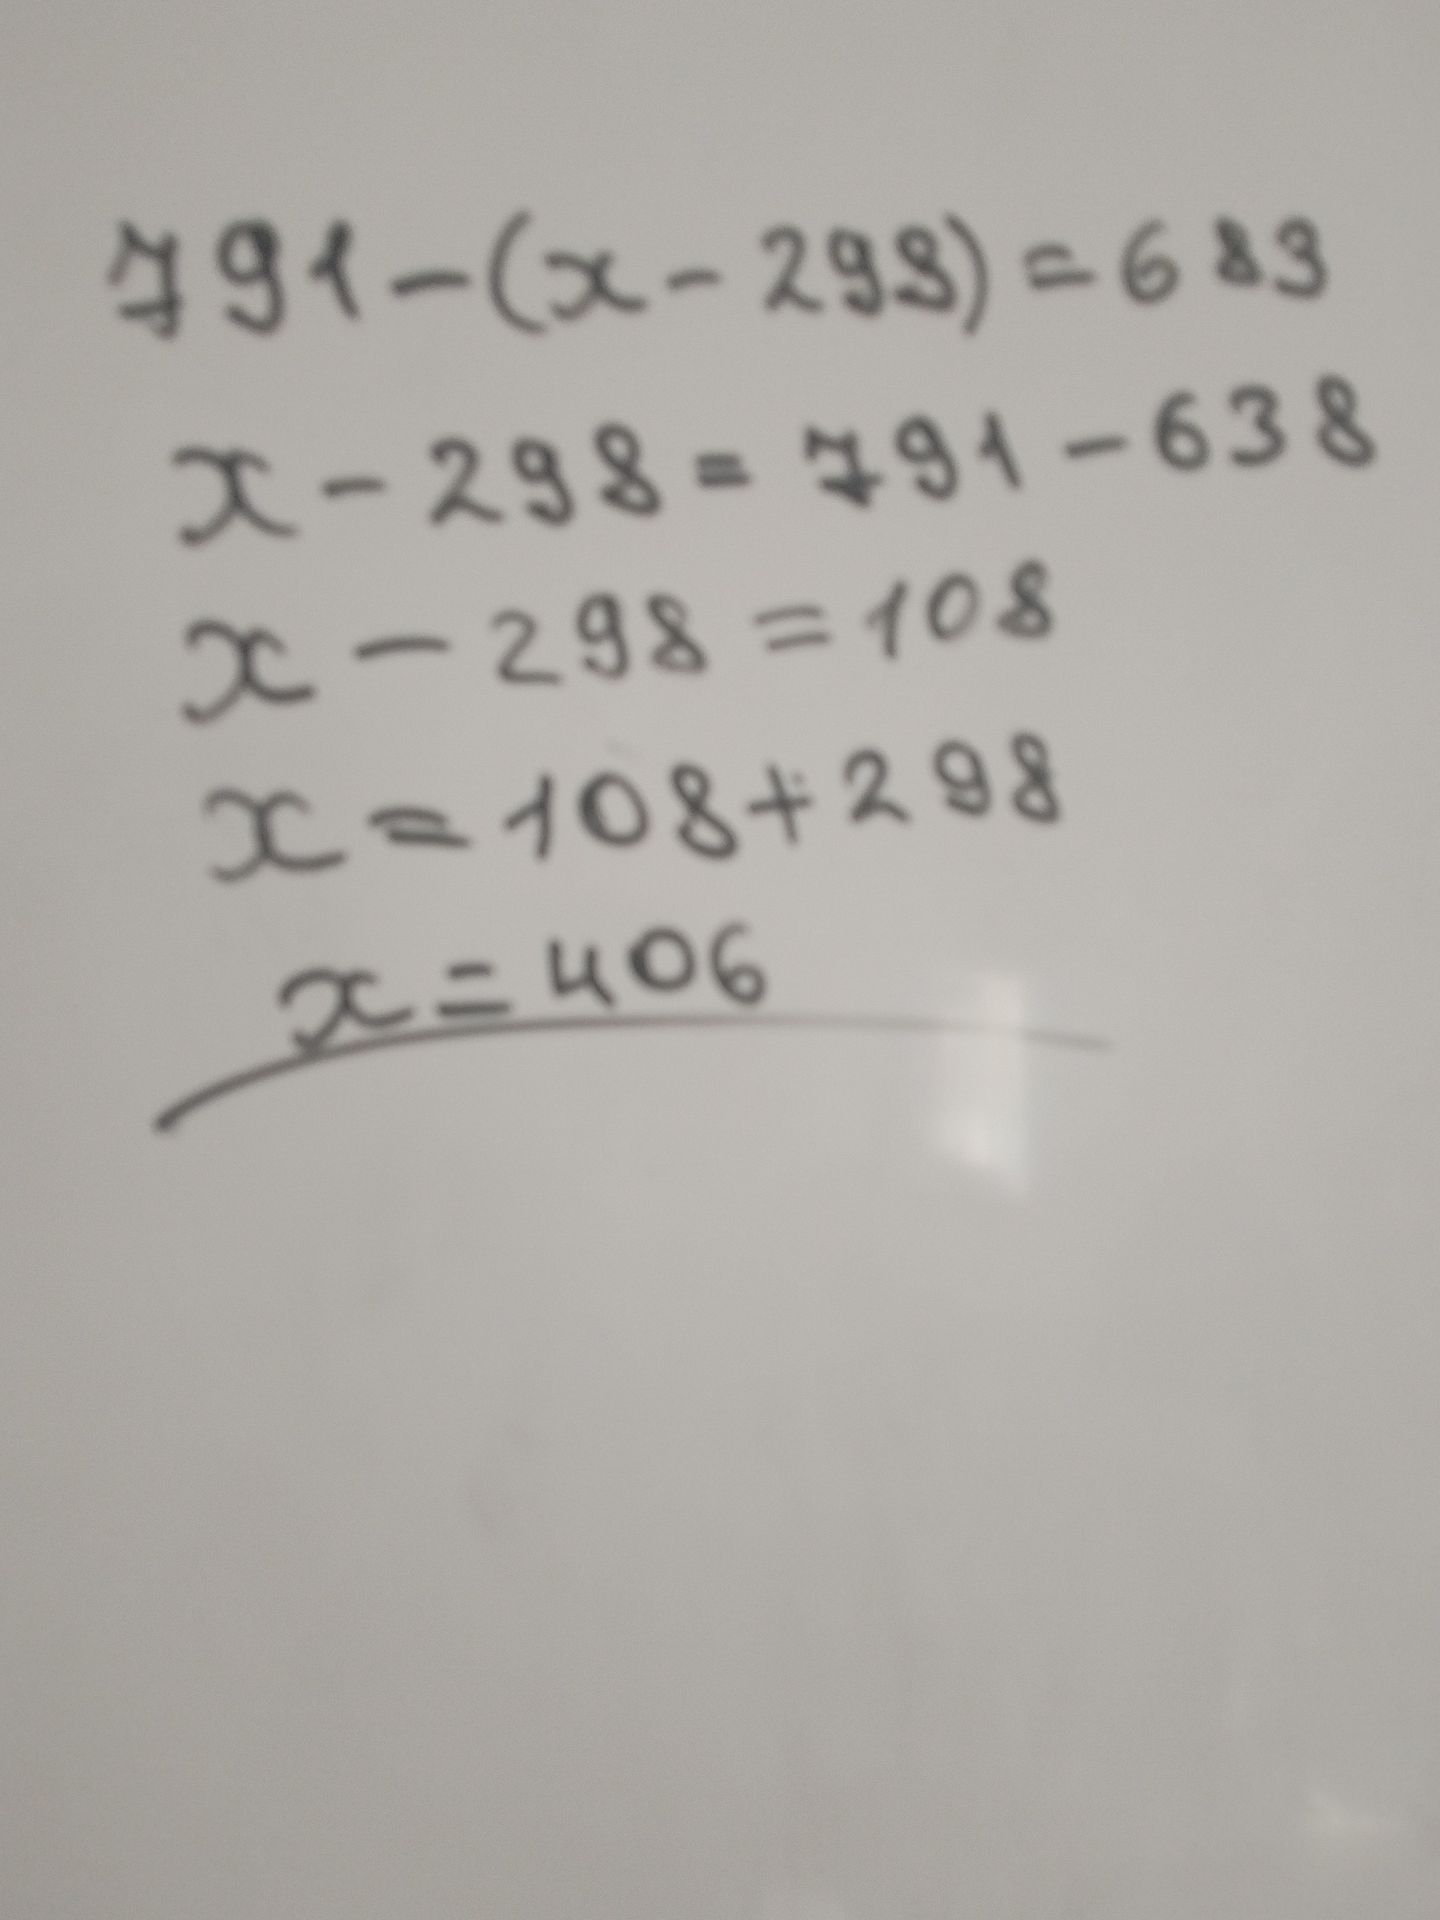 791-(x-298)=683
x-298=791-638
x-298=108
x=108+298
x=406